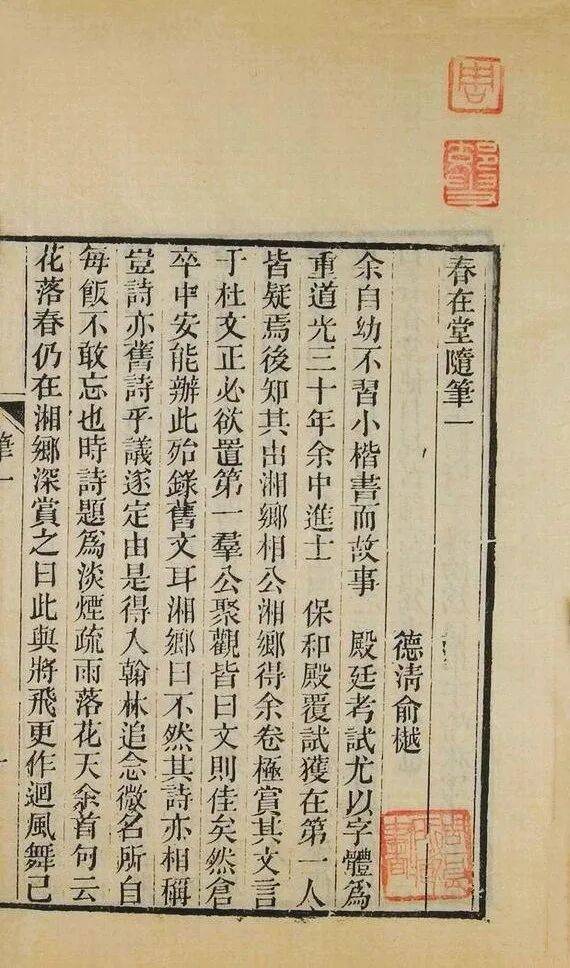 春在堂隨筆一
德清俞樾
余自幼不習小楷書而故事　殿廷考試尤以字體爲
重道光三十年余中進士　保和殿覆試獲在第一人
皆疑焉後知其出湘鄉相公湘鄉得余卷極賞其文言
于杜文正必欲置第一羣公聚觀皆曰文則佳矣然倉
卒中安能辦此殆錄舊文耳湘鄉曰不然其詩亦相稱
豈詩亦舊詩乎議遂定由是得入翰林追念微名所自
每飯不敢忘也時詩題爲淡煙疏雨落花天余首句云
花落春仍在湘鄉深賞之曰此與將飛更作迴風舞已
筆一
周